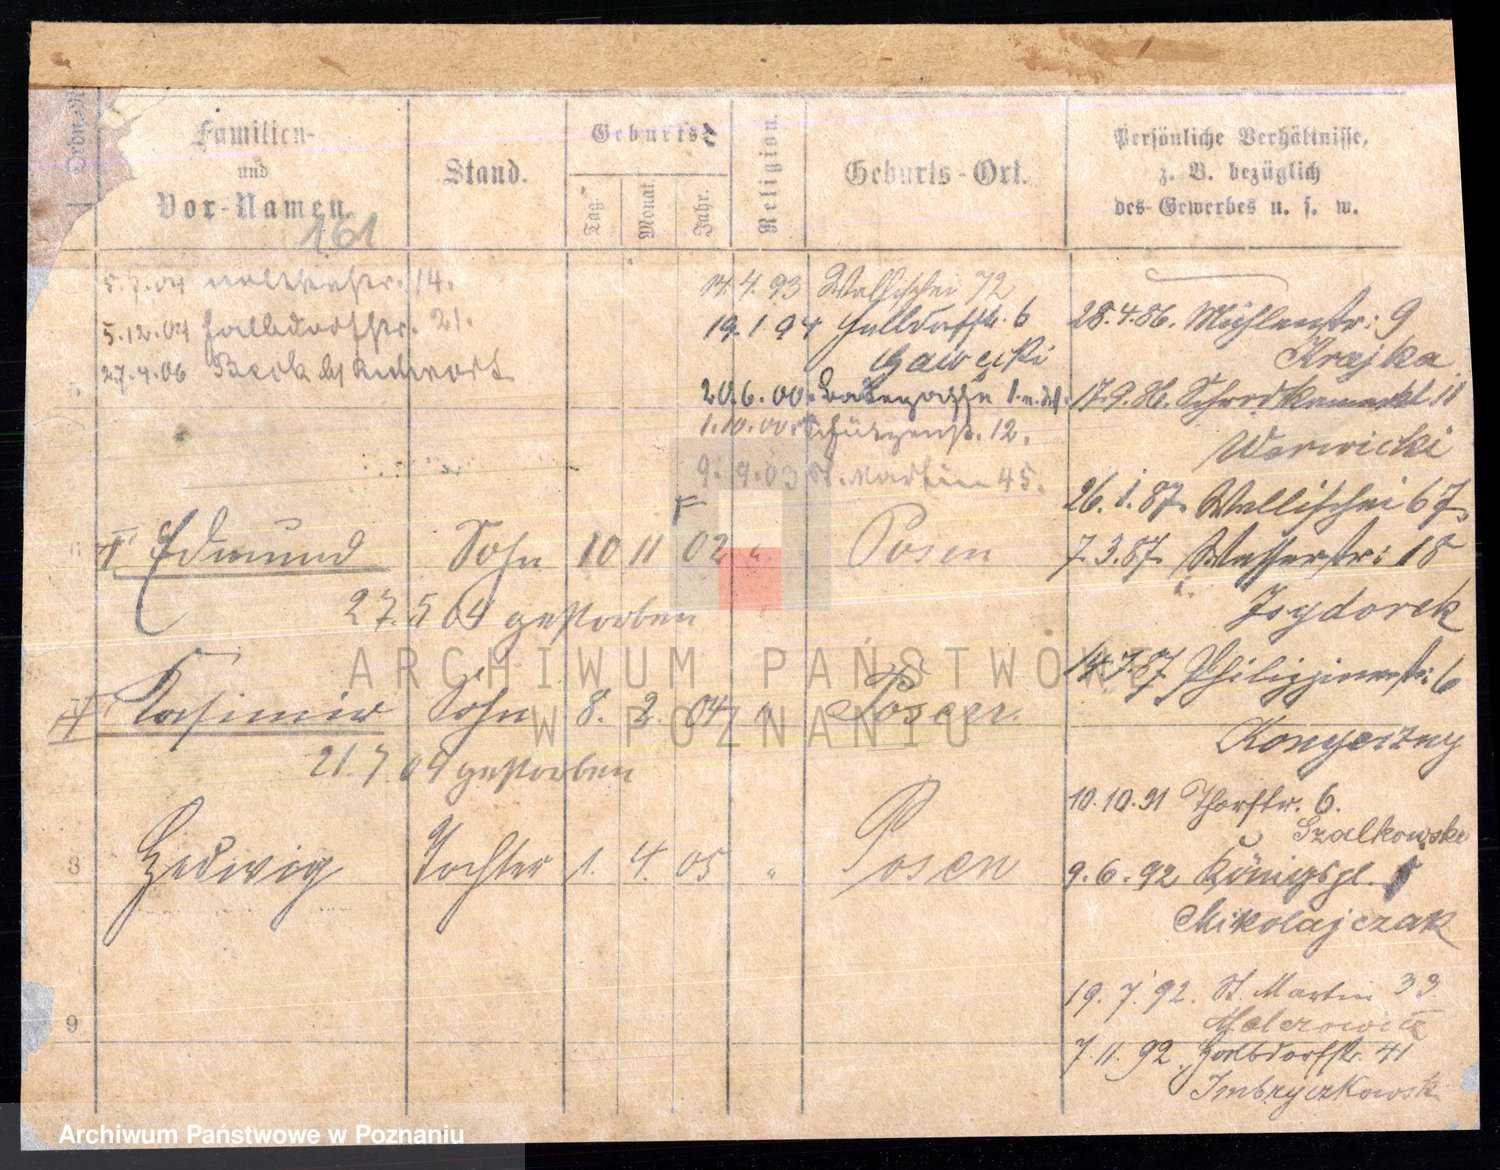 Familien-
und
Vor-Namen.
161
Stand.
Geburts-
Tag.
Monat.
Jahr.
Religion.
Geburts-Ort.
Persönliche Verhältnisse,
z. B. bezüglich
des Gewerbes u. s. w.
5.7.04 14.
5.12.04 Halbdorfstr. 21.
27.4.06
5
14.4.93 Wallischei 72
19.1.94 Halbdorfstr. 6
Gawecki
20.6.00.
1.10.00. Schützenstr. 12.
9.9.03 St. Martin 45.
28.4.86. Mühlenstr: 9
Krajka
17.9.86. Schrodkamarkt 11
Warwicki
26.1.87. Wallischei 67
7.3.87. Wasserstr: 18
Isydorek
14.7.87 Philippinenstr: 6
Kongerzny
10.10.91 Thorstr. 6.
Szalkowski
9.6.92 Königspl.
Mikolajczak
19.7.92. St. Martin 33
7.11.92 Halbdorfstr. 41
Imbryczkowsk
F
6 Edmund Sohn 10 11 02 " Posen
27.5 04 gestorben
Kasimir Sohn 8. 2. 04 " Posen.
21.7 04 gestorben
8 Hedwig Tochter 1. 4. 05 " Posen
9
ARCHIWUM PAŃSTWOWE
W POZNANIU
Archiwum Państwowe w Poznaniu